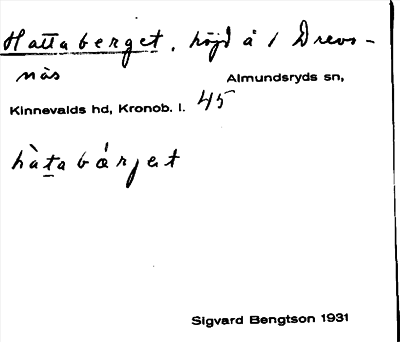 Hattaberget, höjd å 1 Drevs-
näs Almundsryds sn,
Kinnevalds hd, Kronob. l. 45
hàtabárjet
Sigvard Bengtson 1931